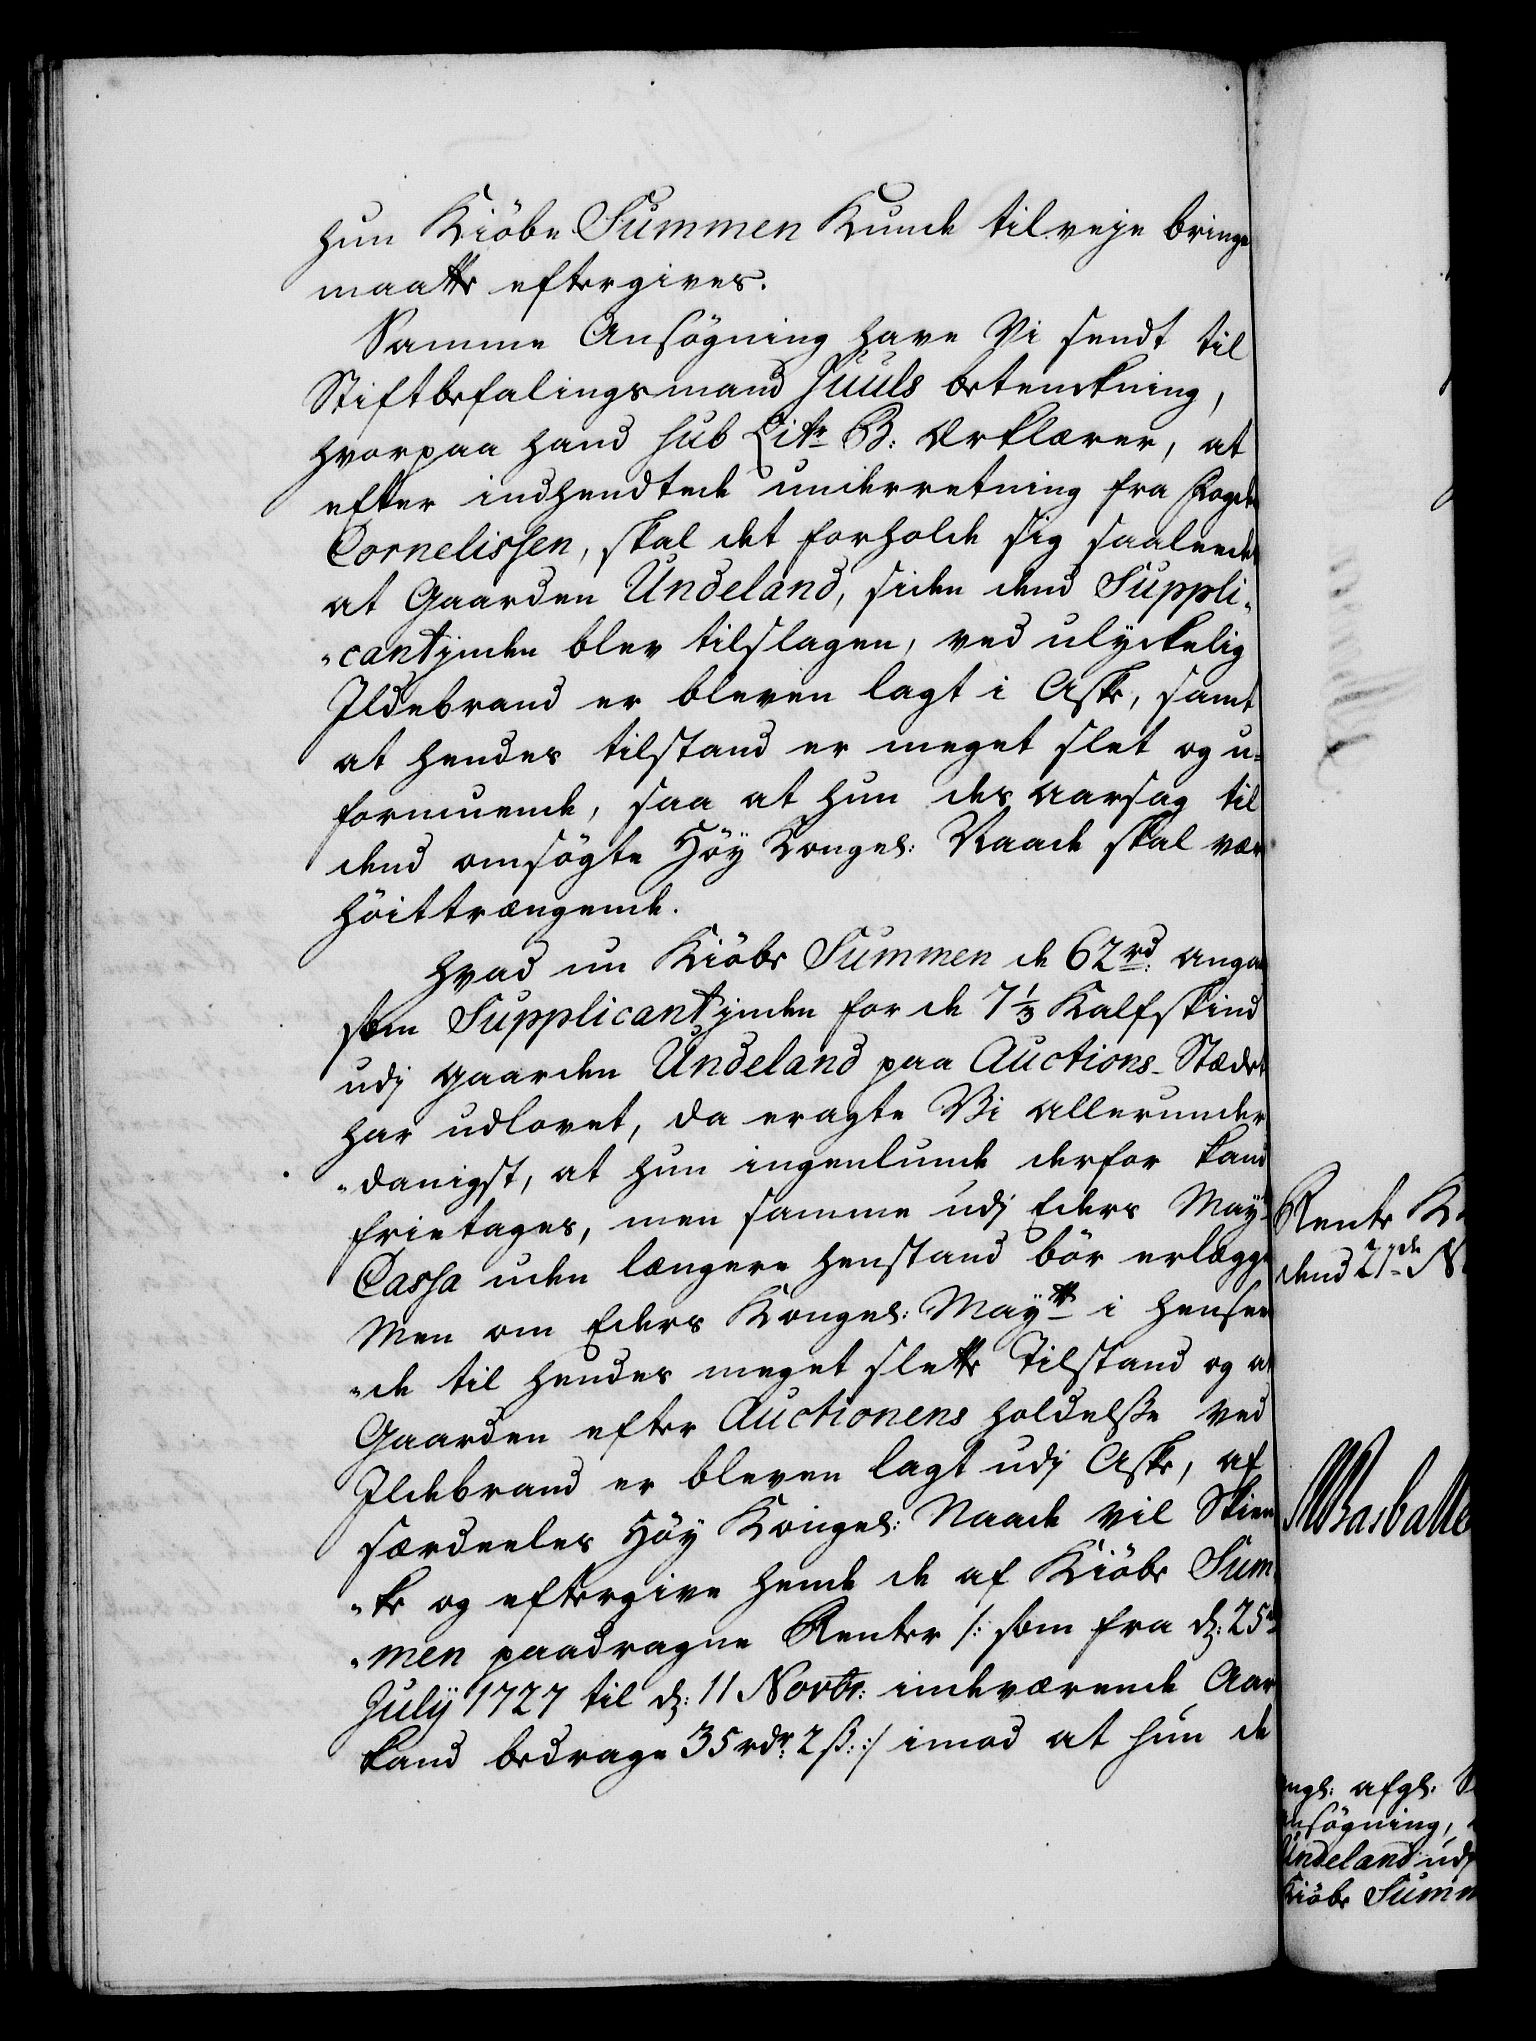 hun Kiöbe Summen Kunde tilveje bringe
maatte eftergives.
Samme Ansögning have Vi sendt til
Stiftbefalingsmand Juuls betenckning,
hvorpaa hand sub Litr B: Erklærer, at
efter indhendtede underretning fra Fogden
Cornelissen, skal det forholde sig saaleedes
at Gaarden Undeland, siden dend Suppli„
„cantinden blev tilslagen, ved ulyckelig
Ildebrand er bleven lagt i Aske, samt
at hendes tilstand er meget slet og u„
formuende, saa at hun des aarsag til
dend omsögte Höy Konges: Naade skal være
höittrængende.
Hvad nu Kiöbe Summen de 62 rd: angaar
som Supplicantinden for de 7 1/3 Kalfskind
udj gaarden Undeland paa Auctions-Stædet
har udlovet, da eragte Vi allerunder
„danigst, at hun ingenlunde derfor kand
frietages, men samme udj Eders Mayts
Cassa uden længere henstand bör erlægge
Men om Eders Konges: Maytt i henseen
„de til hendes meget slette Tilstand og at
Gaarden efter Auctionens holdelsse ved
Ildebrand er bleven lagt udj Aske, af
særdeeles Höy Konges: Naade vil Skien
„ke og eftergive hende de af Kiöbe Sum
„men paadragne Renter /: som fra d: 25de
July 1727 til d: 11 Novbr: indeværende Aar
kand bedrage 35 rdr: 2 ß: :/ imod at hun de
Rente K
dend 21de N
ngs: afgs:
nsögning,
Undeland udj
Kiöbe Summ